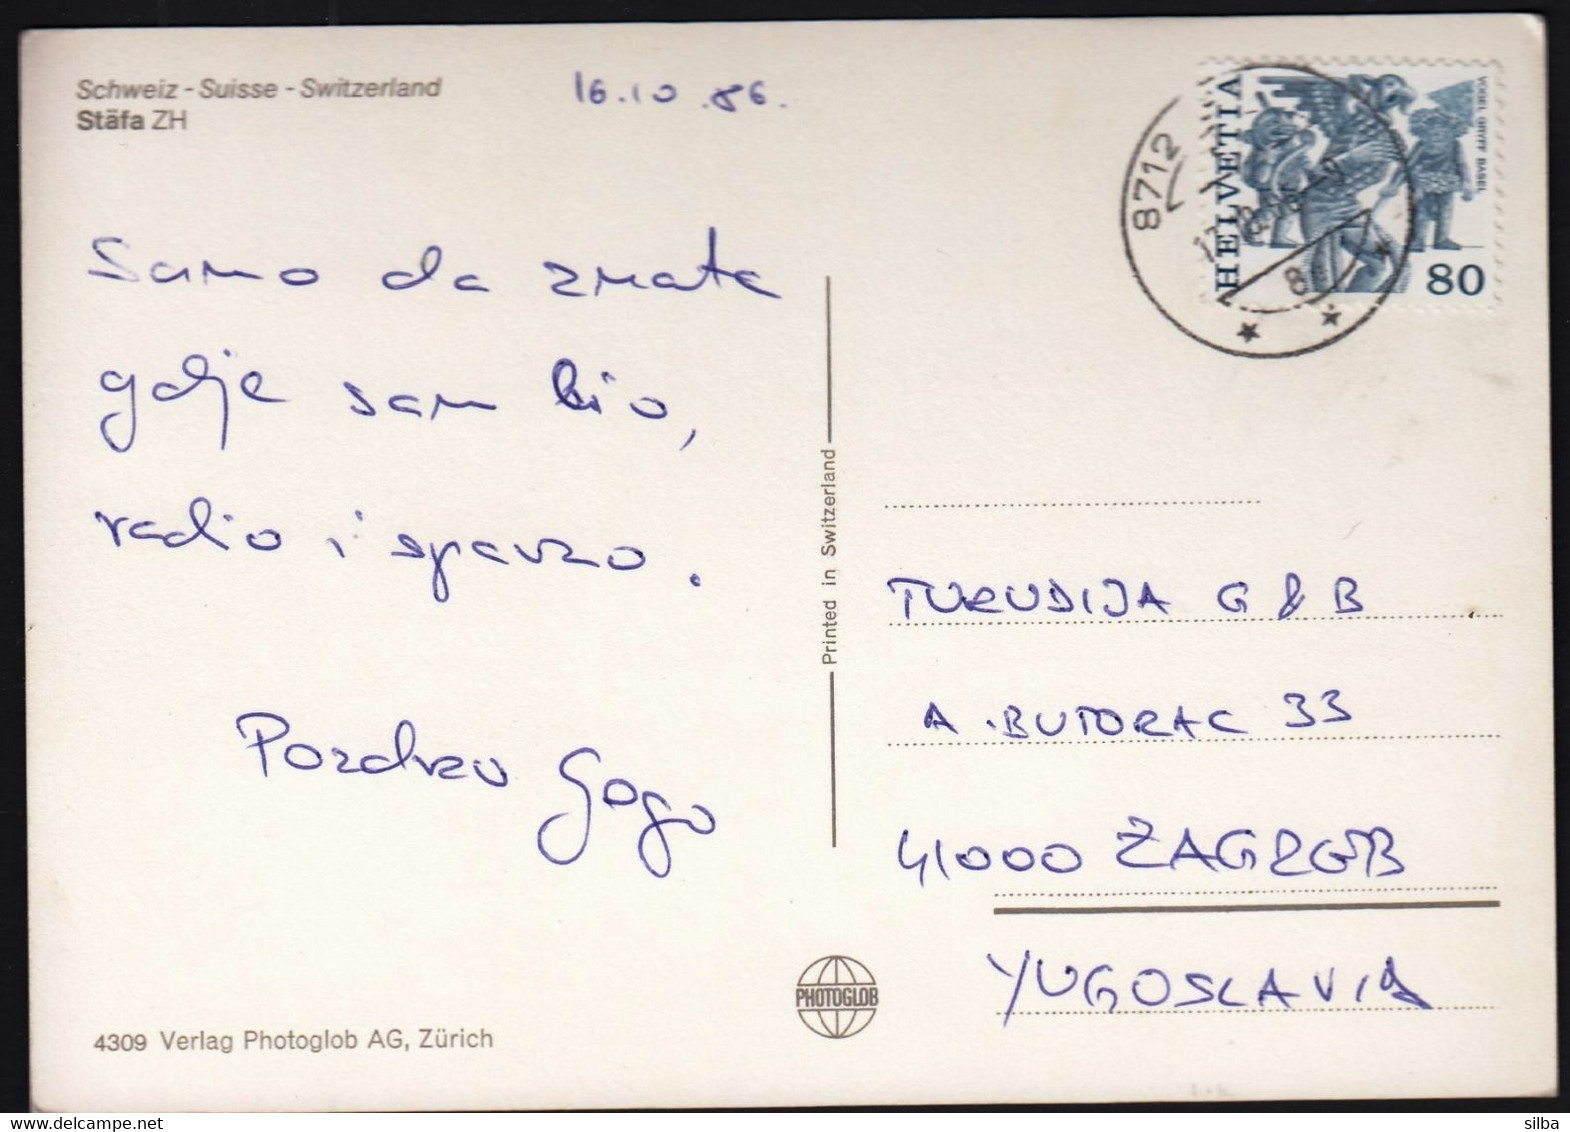 Schweiz - Suisse - Switzerland
Stäfa ZH
16.10.86.
Samo da znate
gdje sam bio,
radio i spavao.
Pozdrav Gogo
4309 Verlag Photoglob AG, Zürich
Printed in Switzerland
PHOTOGLOB
8712
HELVETIA
VOGEL GRYFF BASEL
80
TURUDIJA G & B
A. BUTORAC 33
41000 ZAGREB
YUGOSLAVIA
silba